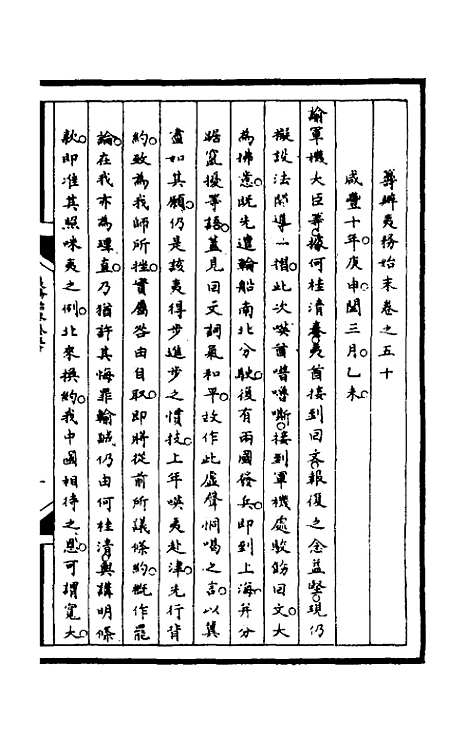 籌辦夷務始末卷之五十
咸豐十年庚申閏三月乙未
諭軍機大臣等據何桂清奏夷酋接到回文報復之念益堅現仍
擬設法開導一摺此次㖫酋噜嘶接到軍機處駁飭回文大
為拂意既先遣輪船南北分駛復有兩國發兵即到上海并分
踞竄擾等語蓋見回文詞氣和平故作此虛聲恫喝之言以冀
盡如其願仍是該夷得步進步之慣技上年㖫夷赴津先行背
約致為我師所挫實屬咎由自取即將從前所議條約概作罷
論在我亦為理直乃猶許其悔罪輸誠仍由何桂清與講明條
款即准其照咪夷之例北來換約我中國相待之恩可謂寬大